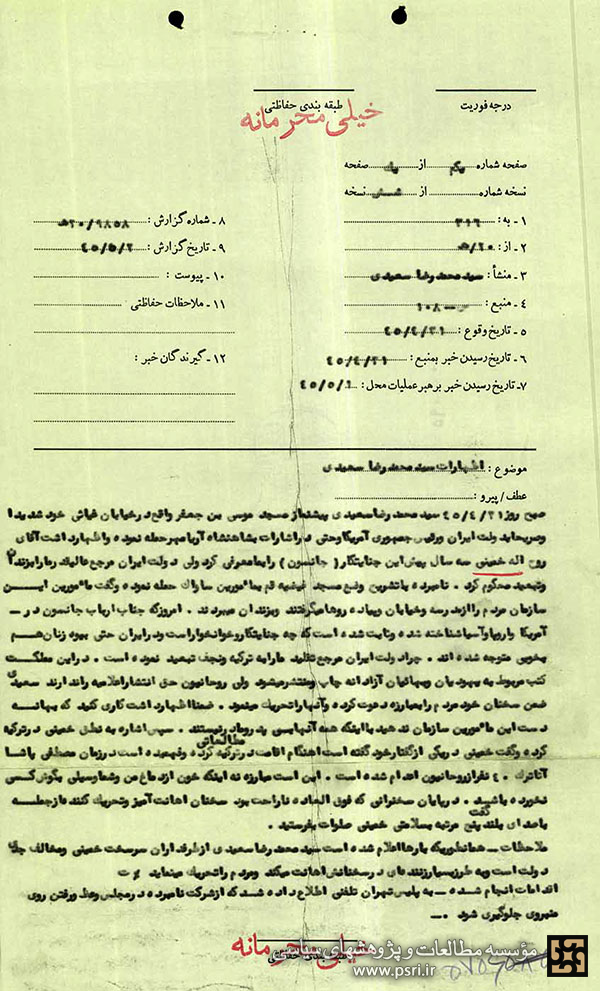 درجه فوریت
طبقه بندی حفاظتی
خیلی محرمانه
صفحه شماره یکم از یک صفحه
نسخه شماره از شش نسخه
۱ - به : ۳۱۶
۲ - از : ۲۰/ﻫ
۳ - منشأ : سید محمد رضا سعیدی
۴ - منبع : ۱۰۸۰
۵ - تاریخ وقوع : ۴۵/۴/۳۱
۶ - تاریخ رسیدن خبر بمنبع : ۴۵/۴/۳۱
۷ - تاریخ رسیدن خبر برهبر عملیات محل : ۴۵/۵/۱
۸ - شماره گزارش : ۹۸۵۸/۲۰ﻫ
۹ - تاریخ گزارش : ۴۵/۵/۲
۱۰ - پیوست :
۱۱ - ملاحظات حفاظتی
۱۲ - گیرندگان خبر :
موضوع : اظهارات سید محمد رضا سعیدی
عطف / پیرو :
صبح روز ۴۵/۴/۳۱ سید محمد رضا سعیدی پیشنماز مسجد موسی بن جعفر واقع در خیابان غیاثی خود شدیدا
و صریحا به دولت ایران و رئیس جمهوری آمریکا و حتی در اشارات بشاهنشاه آریامهر حمله نموده و اظهار داشت آقای
روح اله خمینی سه سال پیش این جنایتکار ( جانسون ) را بما معرفی کرد ولی دولت ایران مرجع عالیقدر ما را بزندان
و تبعید محکوم کرد . نامبرده با تشریح وضع مسجد فیضیه قم بمامورین ساواک حمله نموده و گفت مامورین ایــن
سازمان مردم را از مدرسه و خیابان و پیاده روها میگرفتند و بزندان میبردند . امروز که جناب ارباب جانسون در ــ
آمریکا و اروپا و آسیا شناخته شده و ثابت شده است که چه جنایتکار و خوانخوار است و در ایران حتی بیوه زنان هــم
بخوبی متوجه شده اند . چرا دولت ایران مرجع تقلید ما را به ترکیه و نجف تبعید نموده است . در این مملکــت
کتب مربوط به یهودیان و بهائیان آزادانه چاپ و منتشر میشود ولی روحانیون حق انتشار اعلامیه را ندارند سعیدی
ضمن سخنان خود مردم را بمبارزه دعوت کرده و آنها را تحریک مینمود . ضمنا اظهار داشت کاری کنید که بهانـه
دست این مامورین سازمان ندهید با اینکه همه آنها بی پدر و مادر نیستند . سپس اشاره به نطق خمینی در ترکیه
کرده و گفت خمینی در یکی از گفتار خود گفته است هنگام اقامت در ترکیه مطالعاتی کرده و فهمیده است در زمان مصطفی پاشا
آتاترک ۴۰ نفر از روحانیون اعدام شده است . این است مبارزه نه اینکه خون از دماغ من و شما و سیلی بگوش کسی
نخورده باشد . در پایان سخنرانی که فوق العاده ناراحت بود سخنان اهانت آمیز و تحریک کننده از جملــه گفت
با صدای بلند پنج مرتبه بسلامتی خمینی صلوات بفرستید .
ملاحظات ــ همانطوریکه بارها اعلام شده است سید محمد رضا سعیدی از طرفداران سرسخت خمینی و مخالف جدی
دولت است و به طرز بسیار زننده ای در سخنانش اهانت میکند و مردم را تحریک مینماید
اقدامات انجام شده ــ به پلیس تهران تلفنی اطلاع داده شد که از شرکت نامبرده در مجلس وعظ و رفتن روی
منبر وی جلوگیری شود .
خیلی محرمانه
طبقه بندی حفاظتی
مؤسسه مطالعات و پژوهشهای سیاسی
www.psri.ir